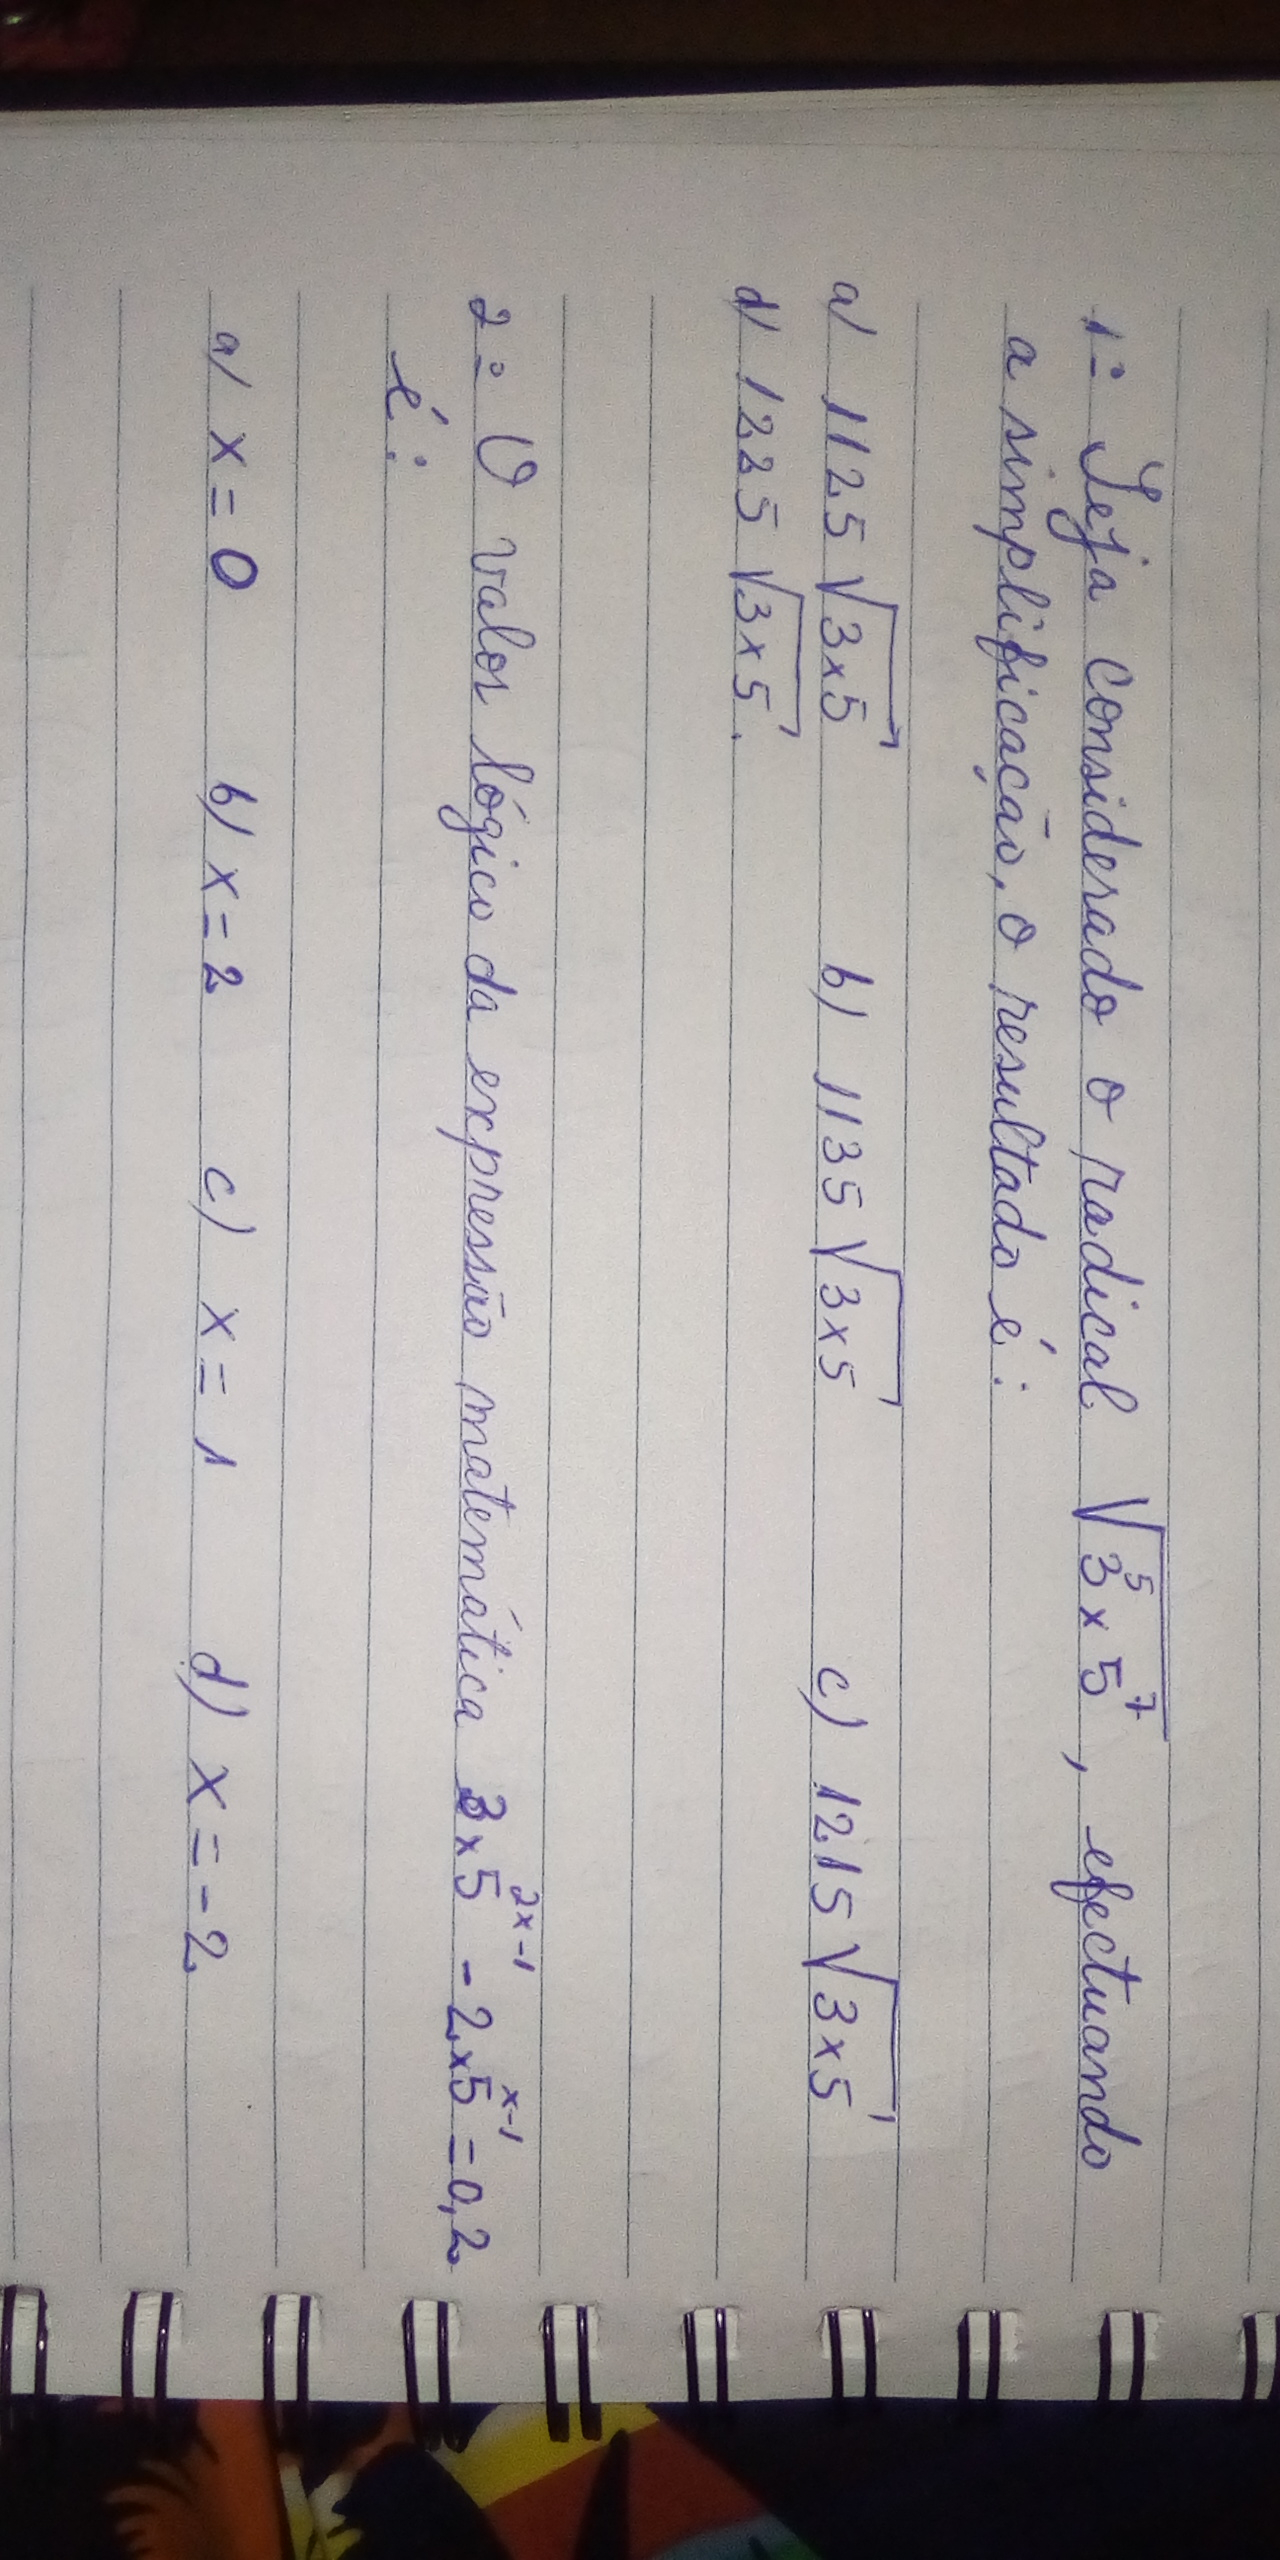 1= Seja considerado o radical √3⁵ x 5⁷, efectuando
a simplificação, o resultado é:
a) 1125 √3x5 b) 1135 √3x5 c) 1215 √3x5
d) 1225 √3x5.
2= O valor lógico da expressão matemática 3x5²ˣ⁻¹ - 2x5ˣ⁻¹ = 0,2
é:
a) x = 0 b) x = 2 c) x = 1 d) x = -2